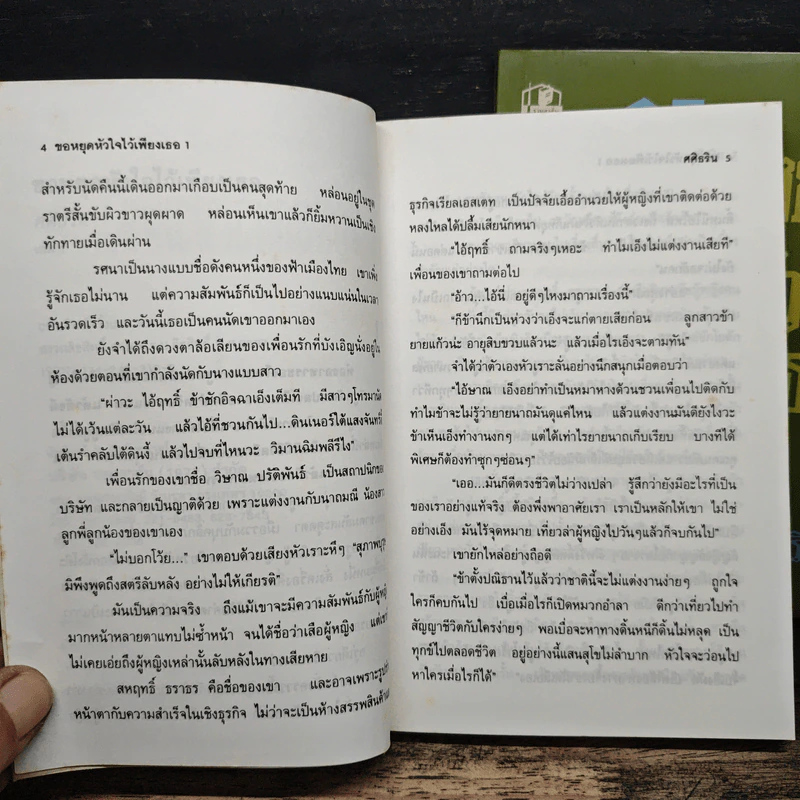 4 ขอหยุดหัวใจไว้เพียงเธอ 1
สำหรับนัดคืนนี้เดินออกมาเกือบเป็นคนสุดท้าย หล่อนอยู่ในชุด
ราตรีสั้นขับผิวขาวผุดผาด หล่อนเห็นเขาแล้วก็ยิ้มหวานเป็นเชิง
ทักทายเมื่อเดินผ่าน
รศนาเป็นนางแบบชื่อดังคนหนึ่งของฟ้าเมืองไทย เขาเพิ่ง
รู้จักเธอไม่นาน แต่ความสัมพันธ์ก็เป็นไปอย่างแนบแน่นในเวลา
อันรวดเร็ว และวันนี้เธอเป็นคนนัดเขาออกมาเอง
ยังจำได้ถึงดวงตาล้อเลียนของเพื่อนรักที่บังเอิญนั่งอยู่ใน
ห้องด้วยตอนที่เขากำลังนัดกับนางแบบสาว
“ผ่าวะ ไอ้ฤทธิ์ ข้าชักอิจฉาเอ็งเต็มที มีสาวๆโทรมานัด
ไม่ได้เว้นแต่ละวัน แล้วไอ้ที่ชวนกันไป...ดินเนอร์ใต้แสงจันทร์
เต้นรำคลับใต้ดินงี้ แล้วไปจบที่ไหนวะ วิมานฉิมพลีรึไง”
เพื่อนรักของเขาชื่อ วิษาณ ปรัติพันธ์ เป็นสถาปนิกของ
บริษัท และกลายเป็นญาติด้วย เพราะแต่งงานกับนาถมณี น้องสาว
ลูกพี่ลูกน้องของเขาเอง
“ไม่บอกโว้ย...” เขาตอบด้วยเสียงหัวเราะหึๆ “สุภาพบุรุษ
มิพึงพูดถึงสตรีลับหลัง อย่างไม่ให้เกียรติ”
มันเป็นความจริง ถึงแม้เขาจะมีความสัมพันธ์กับผู้หญิง
มากหน้าหลายตาแทบไม่ซ้ำหน้า จนได้ชื่อว่าเสือผู้หญิง แต่เขา
ไม่เคยเอ่ยถึงผู้หญิงเหล่านั้นลับหลังในทางเสียหาย
สหฤทธิ์ ธราธร คือชื่อของเขา และอาจเพราะรูปร่าง
หน้าตากับความสำเร็จในเชิงธุรกิจ ไม่ว่าจะเป็นห้างสรรพสินค้า
ศศิธริน 5
ธุรกิจเรียลเอสเตท เป็นปัจจัยเอื้ออำนวยให้ผู้หญิงที่เขาติดต่อด้วย
หลงใหลได้ปลื้มเสียนักหนา
“ไอ้ฤทธิ์ ถามจริงๆเหอะ ทำไมเอ็งไม่แต่งงานเสียที”
เพื่อนของเขาถามต่อไป
“อ้าว...ไอ้นี่ อยู่ดีๆไหงมาถามเรื่องนี้”
“ก็ข้านึกเป็นห่วงว่าเอ็งจะแก่ตายเสียก่อน ลูกสาวข้า
ยายแก้วน่ะ อายุสิบขวบแล้วนะ แล้วเมื่อไรเอ็งจะตามทัน”
จำได้ว่าตัวเองหัวเราะลั่นอย่างนึกสนุกเมื่อตอบว่า
“ไอ้ษาณ เอ็งอย่าทำเป็นหมาหางด้วนชวนเพื่อนไปติดกับ
ทำไมข้าจะไม่รู้ว่ายายนาถมันดุแค่ไหน แล้วแต่งงานมันดียังไงวะ
ข้าเห็นเอ็งทำงานงกๆ แต่ได้เท่าไรยายนาถเก็บเรียบ บางทีได้
พิเศษก็ต้องทำซุกๆซ่อนๆ”
“เออ...มันก็ดีตรงชีวิตไม่ว่างเปล่า รู้สึกว่ายังมีอะไรที่เป็น
ของเราอย่างแท้จริง ต้องพึ่งพาอาศัยเรา เราเป็นหลักให้เขา ไม่ใช่
อย่างเอ็ง มันไร้จุดหมาย เที่ยวล่าผู้หญิงไปวันๆแล้วก็จบกันไป”
เขายักไหล่อย่างถือดี
“ข้าตั้งปณิธานไว้แล้วว่าชาตินี้จะไม่แต่งงานง่ายๆ ถูกใจ
ใครก็คบกันไป เบื่อเมื่อไรก็เปิดหมวกอำลา ดีกว่าเที่ยวไปทำ
สัญญาชีวิตกับใครง่ายๆ พอเบื่อจะหาทางดิ้นหนีก็ดิ้นไม่หลุด เป็น
ทุกข์ไปตลอดชีวิต อยู่อย่างนี้แสนสุขไม่ลำบาก หัวใจจะว่อนไป
หาใครเมื่อไรก็ได้”